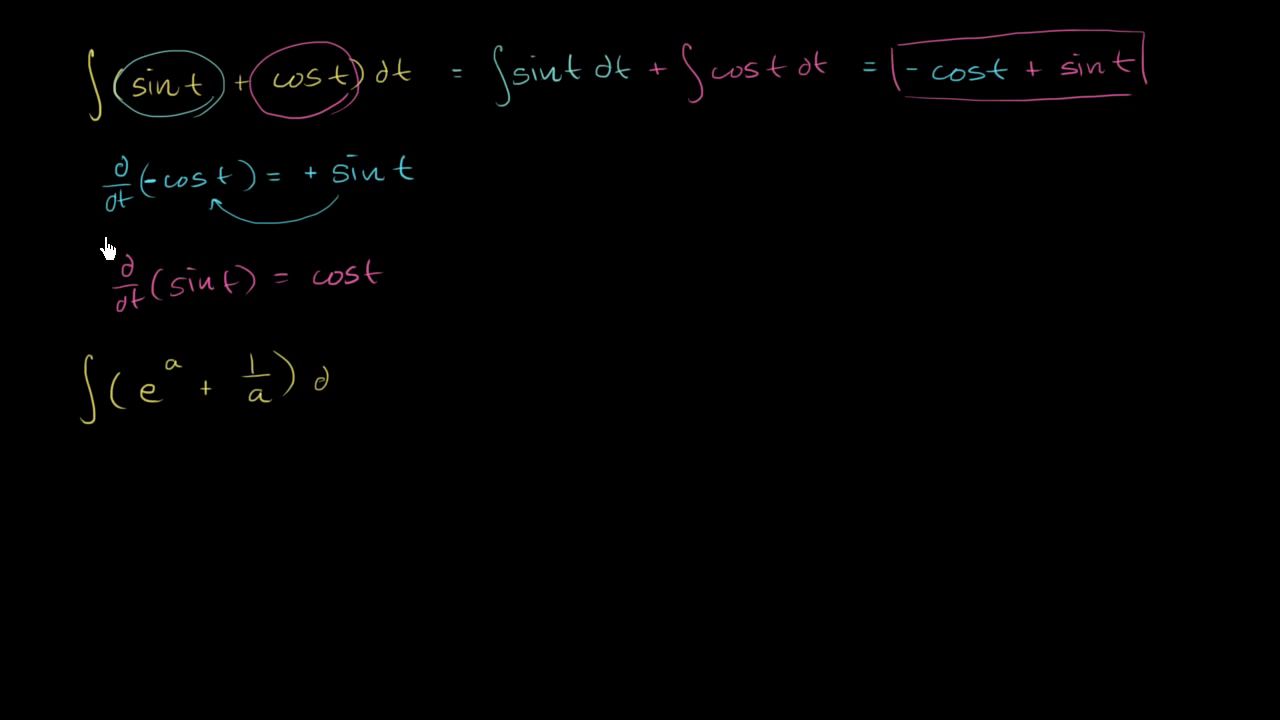 ∫(sin t + cos t) dt = ∫sin t dt + ∫cos t dt = -cos t + sin t
d/dt(-cos t) = + sin t
d/dt(sin t) = cos t
∫(e^a + 1/a) d